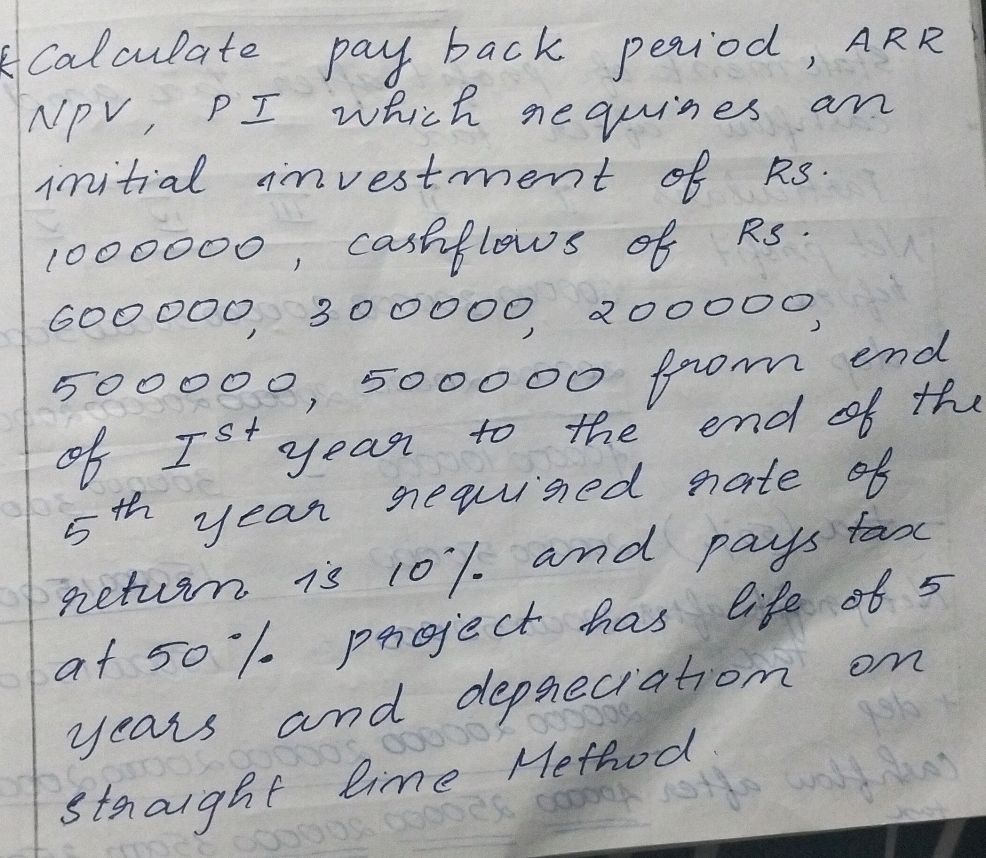 * Calculate pay back period, ARR
NPV, PI which requires an
initial investment of RS.
1000000, cashflows of RS.
600000, 300000, 200000,
500000, 500000 from end
of Ist year to the end of the
5th year required rate of
return is 10%. and pays tax
at 50%. project has life of 5
years and depreciation on
straight line Method.